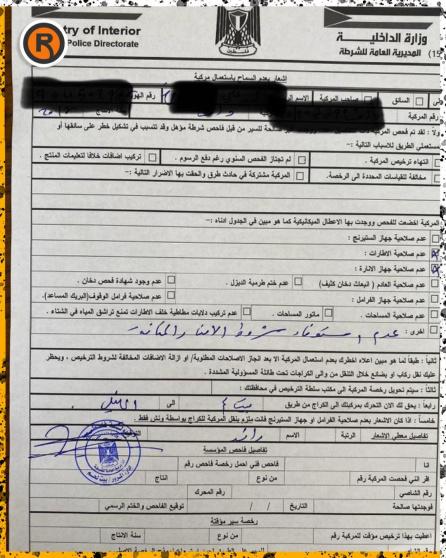 ry of Interior
Police Directorate
R
فلسطين
وزارة الداخلية
المديرية العامة للشرطة
اشعار بعدم السماح باستعمال مركبة
السائق
صاحب المركبة
الاسم
رقم الهوية
رقم المركبة
ولا : لقد تم فحص المركبة
للسير من قبل فاحص شرطة مؤهل وقد تتسبب في تشكيل خطر على سائقها أو
مستعملي الطريق للاسباب التالية :-
انتهاء ترخيص المركبة .
لم تجتاز الفحص السنوي رغم دفع الرسوم .
تركيب اضافات خلافا لتعليمات المنتج .
مخالفة القياسات المحددة الى الرخصة.
المركبة مشتركة في حادث طرق والحقت بها الاضرار التالية :-
المركبة اخضعت للفحص ووجدت بها الاعطال الميكانيكية كما هو مبين في الجدول ادناه :-
عدم صلاحية جهاز الستيرنج :
عدم صلاحية الاطارات :
عدم صلاحية جهاز الانارة :
عدم صلاحية العادم ( انبعاث دخان كثيف)
عدم ختم طرمبة الديزل .
عدم وجود شهادة فحص دخان .
عدم صلاحية جهاز الفرامل :
عدم صلاحية فرامل الوقوف(البريك المساعد).
عدم صلاحية المساحات .
ماتور المساحات .
عدم تركيب دلايات مطاطية خلف الاطارات تمنع تراشق المياه في الشتاء .
اخرى : عدم استيفاء شروط الامن والمتانة
ثانيا : طبقا لما هو مبين اعلاه اخطرك بعدم استعمال المركبة الا بعد انجاز الاصلاحات المطلوبة/ او ازالة الاضافات المخالفة لشروط الترخيص ، ويحظر
عليك نقل ركاب او بضائع خلال التنقل من والى الكراجات تحت طائلة المسؤولية المشددة .
ثالثا : سيتم تحويل رخصة المركبة الى مكتب سلطة الترخيص في محافظتك :
رابعا : يحق لك الان التحرك بمركبتك الى الكراج من طريق
الى
خامسا : اذا كان الاشعار بعدم صلاحية الفرامل او جهاز الستيرنج فانت ملزم بنقل المركبة للكراج بواسطة ونش فقط .
تفاصيل معطي الاشعار
الرتبة
الاسم
رائد
تفاصيل فاحص المؤسسة
انا
فاحص فني احمل رخصة فاحص رقم
اقر انني فحصت المركبة رقم
من نوع
انتاج
رقم الشاصي
رقم المحرك
فوجدتها صالحة
التاريخ / /
توقيع الفاحص والختم الرسمي
رخصة سير مؤقتة
اعطيت بهذا ترخيص مؤقت للمركبة رقم
من نوع
سنة الانتاج